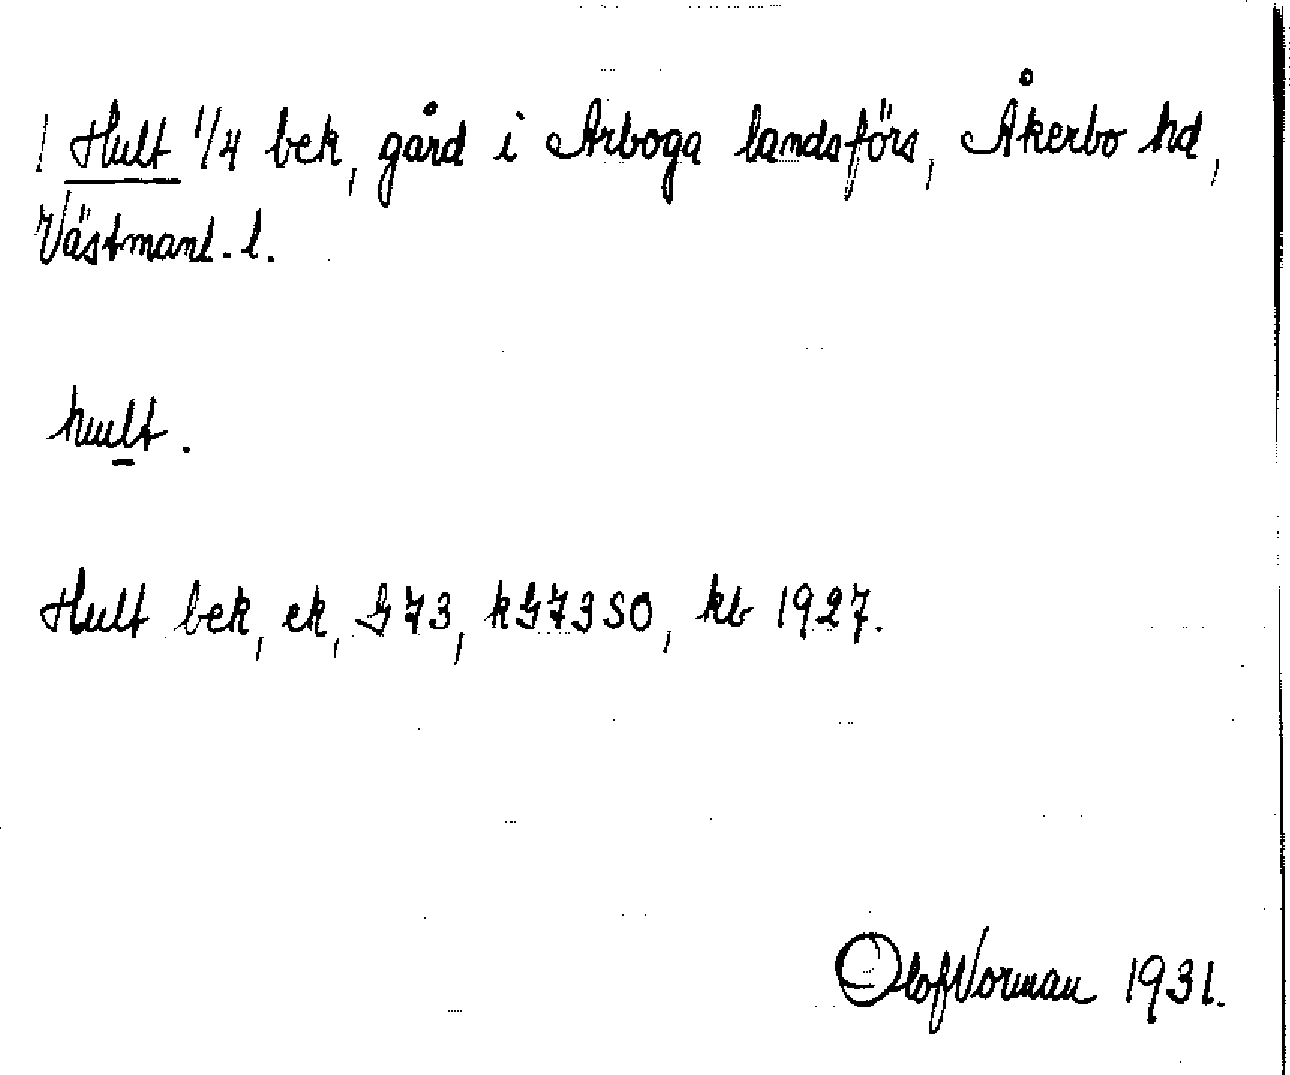 1 Hult 1/4 bek, gård i Arboga landsförs, Åkerbo hd,
Västmanl. l.
hult.
Hult bek, ek, G 73, kG73SO, kb 1927.
Olof Norman 1931.